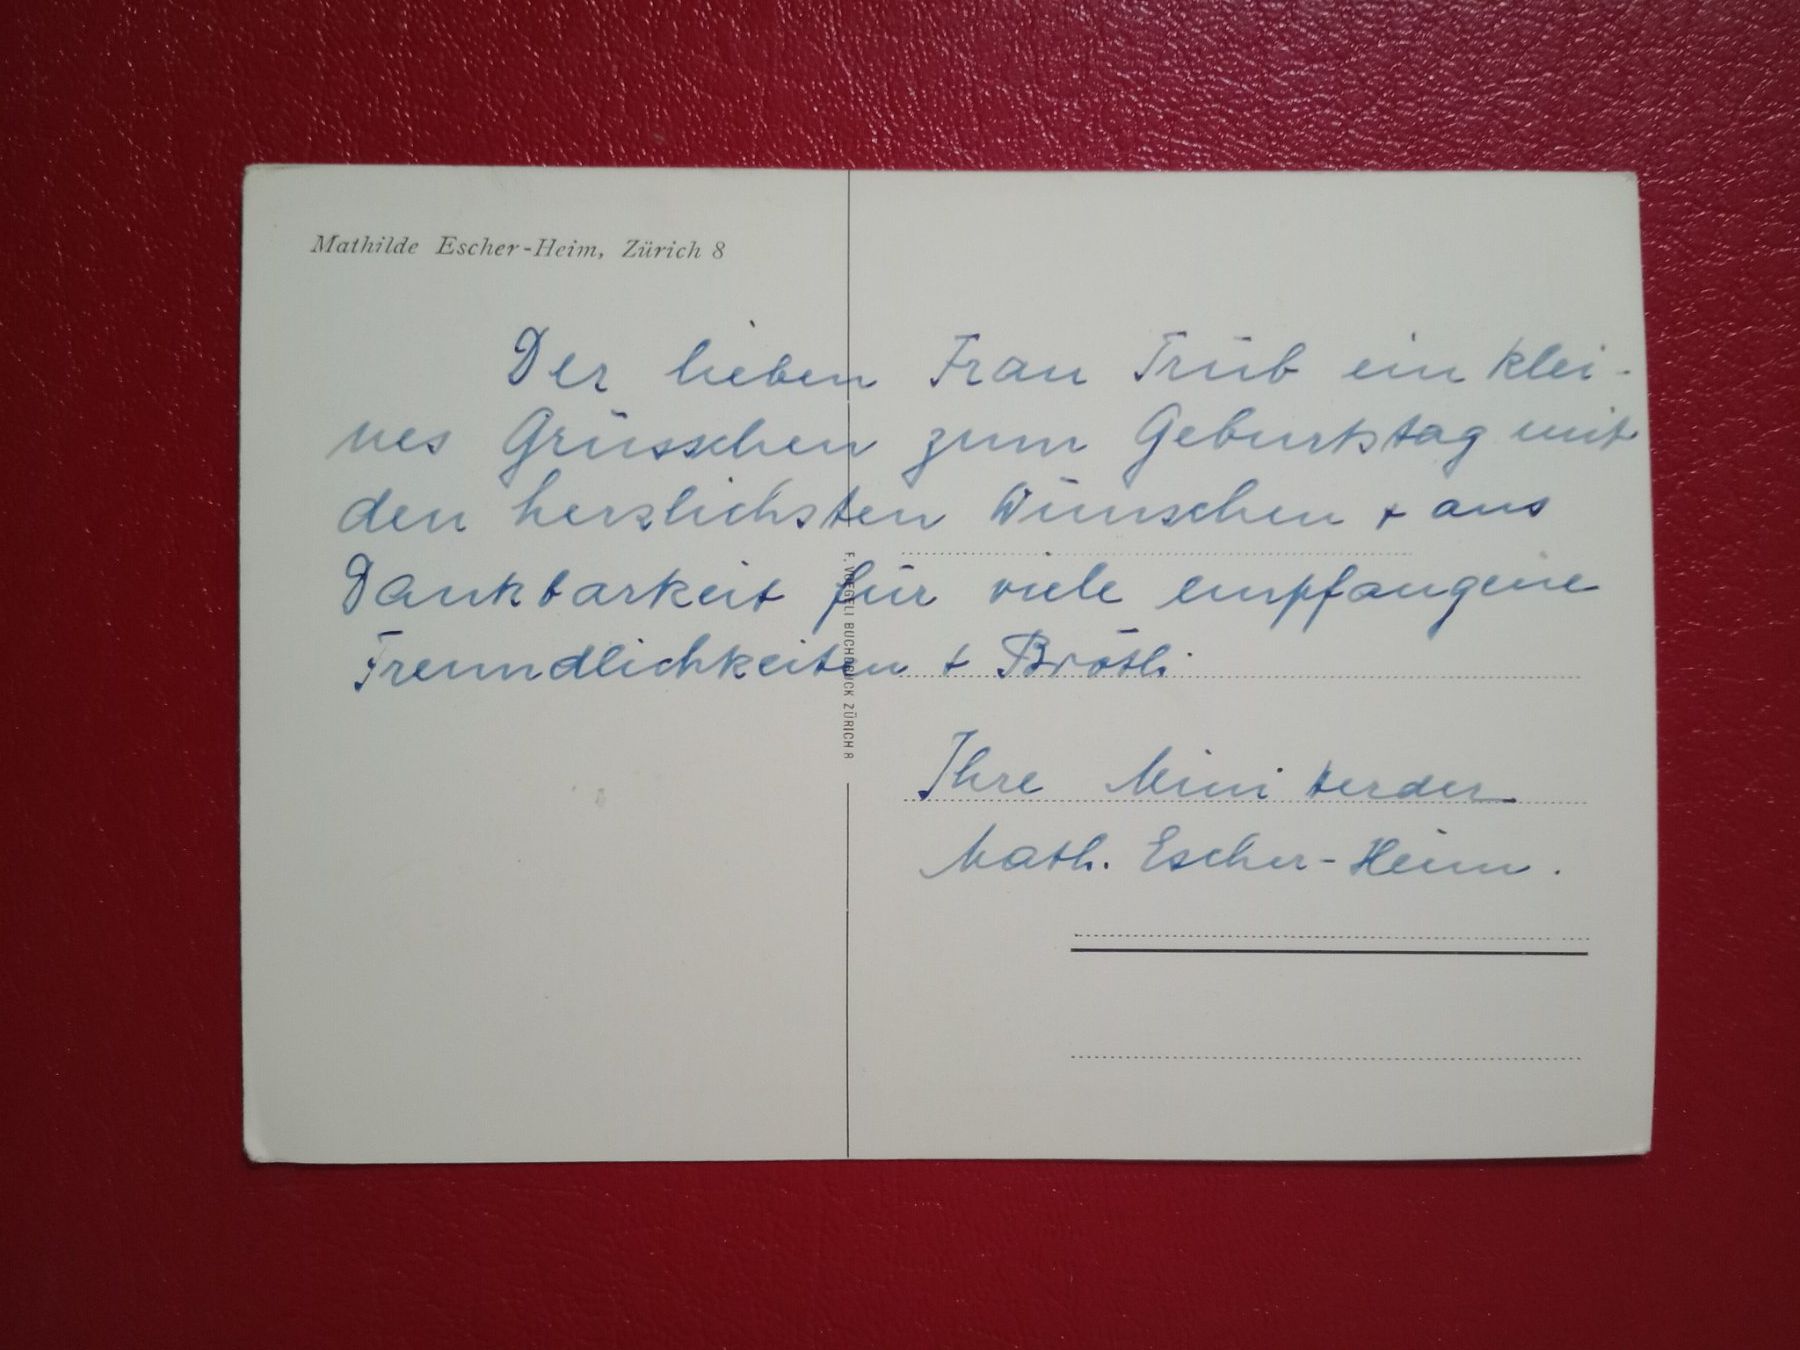 Mathilde Escher-Heim, Zürich 8
Der lieben Frau Trüb ein klei-
nes Grüsschen zum Geburtstag mit
den herzlichsten Wünschen + aus
Dankbarkeit für viele empfangene
Freundlichkeiten + Brötli.
Ihre Mimi
Math. Escher-Heim.
F. VOEGELI BUCHDRUCK ZÜRICH 8